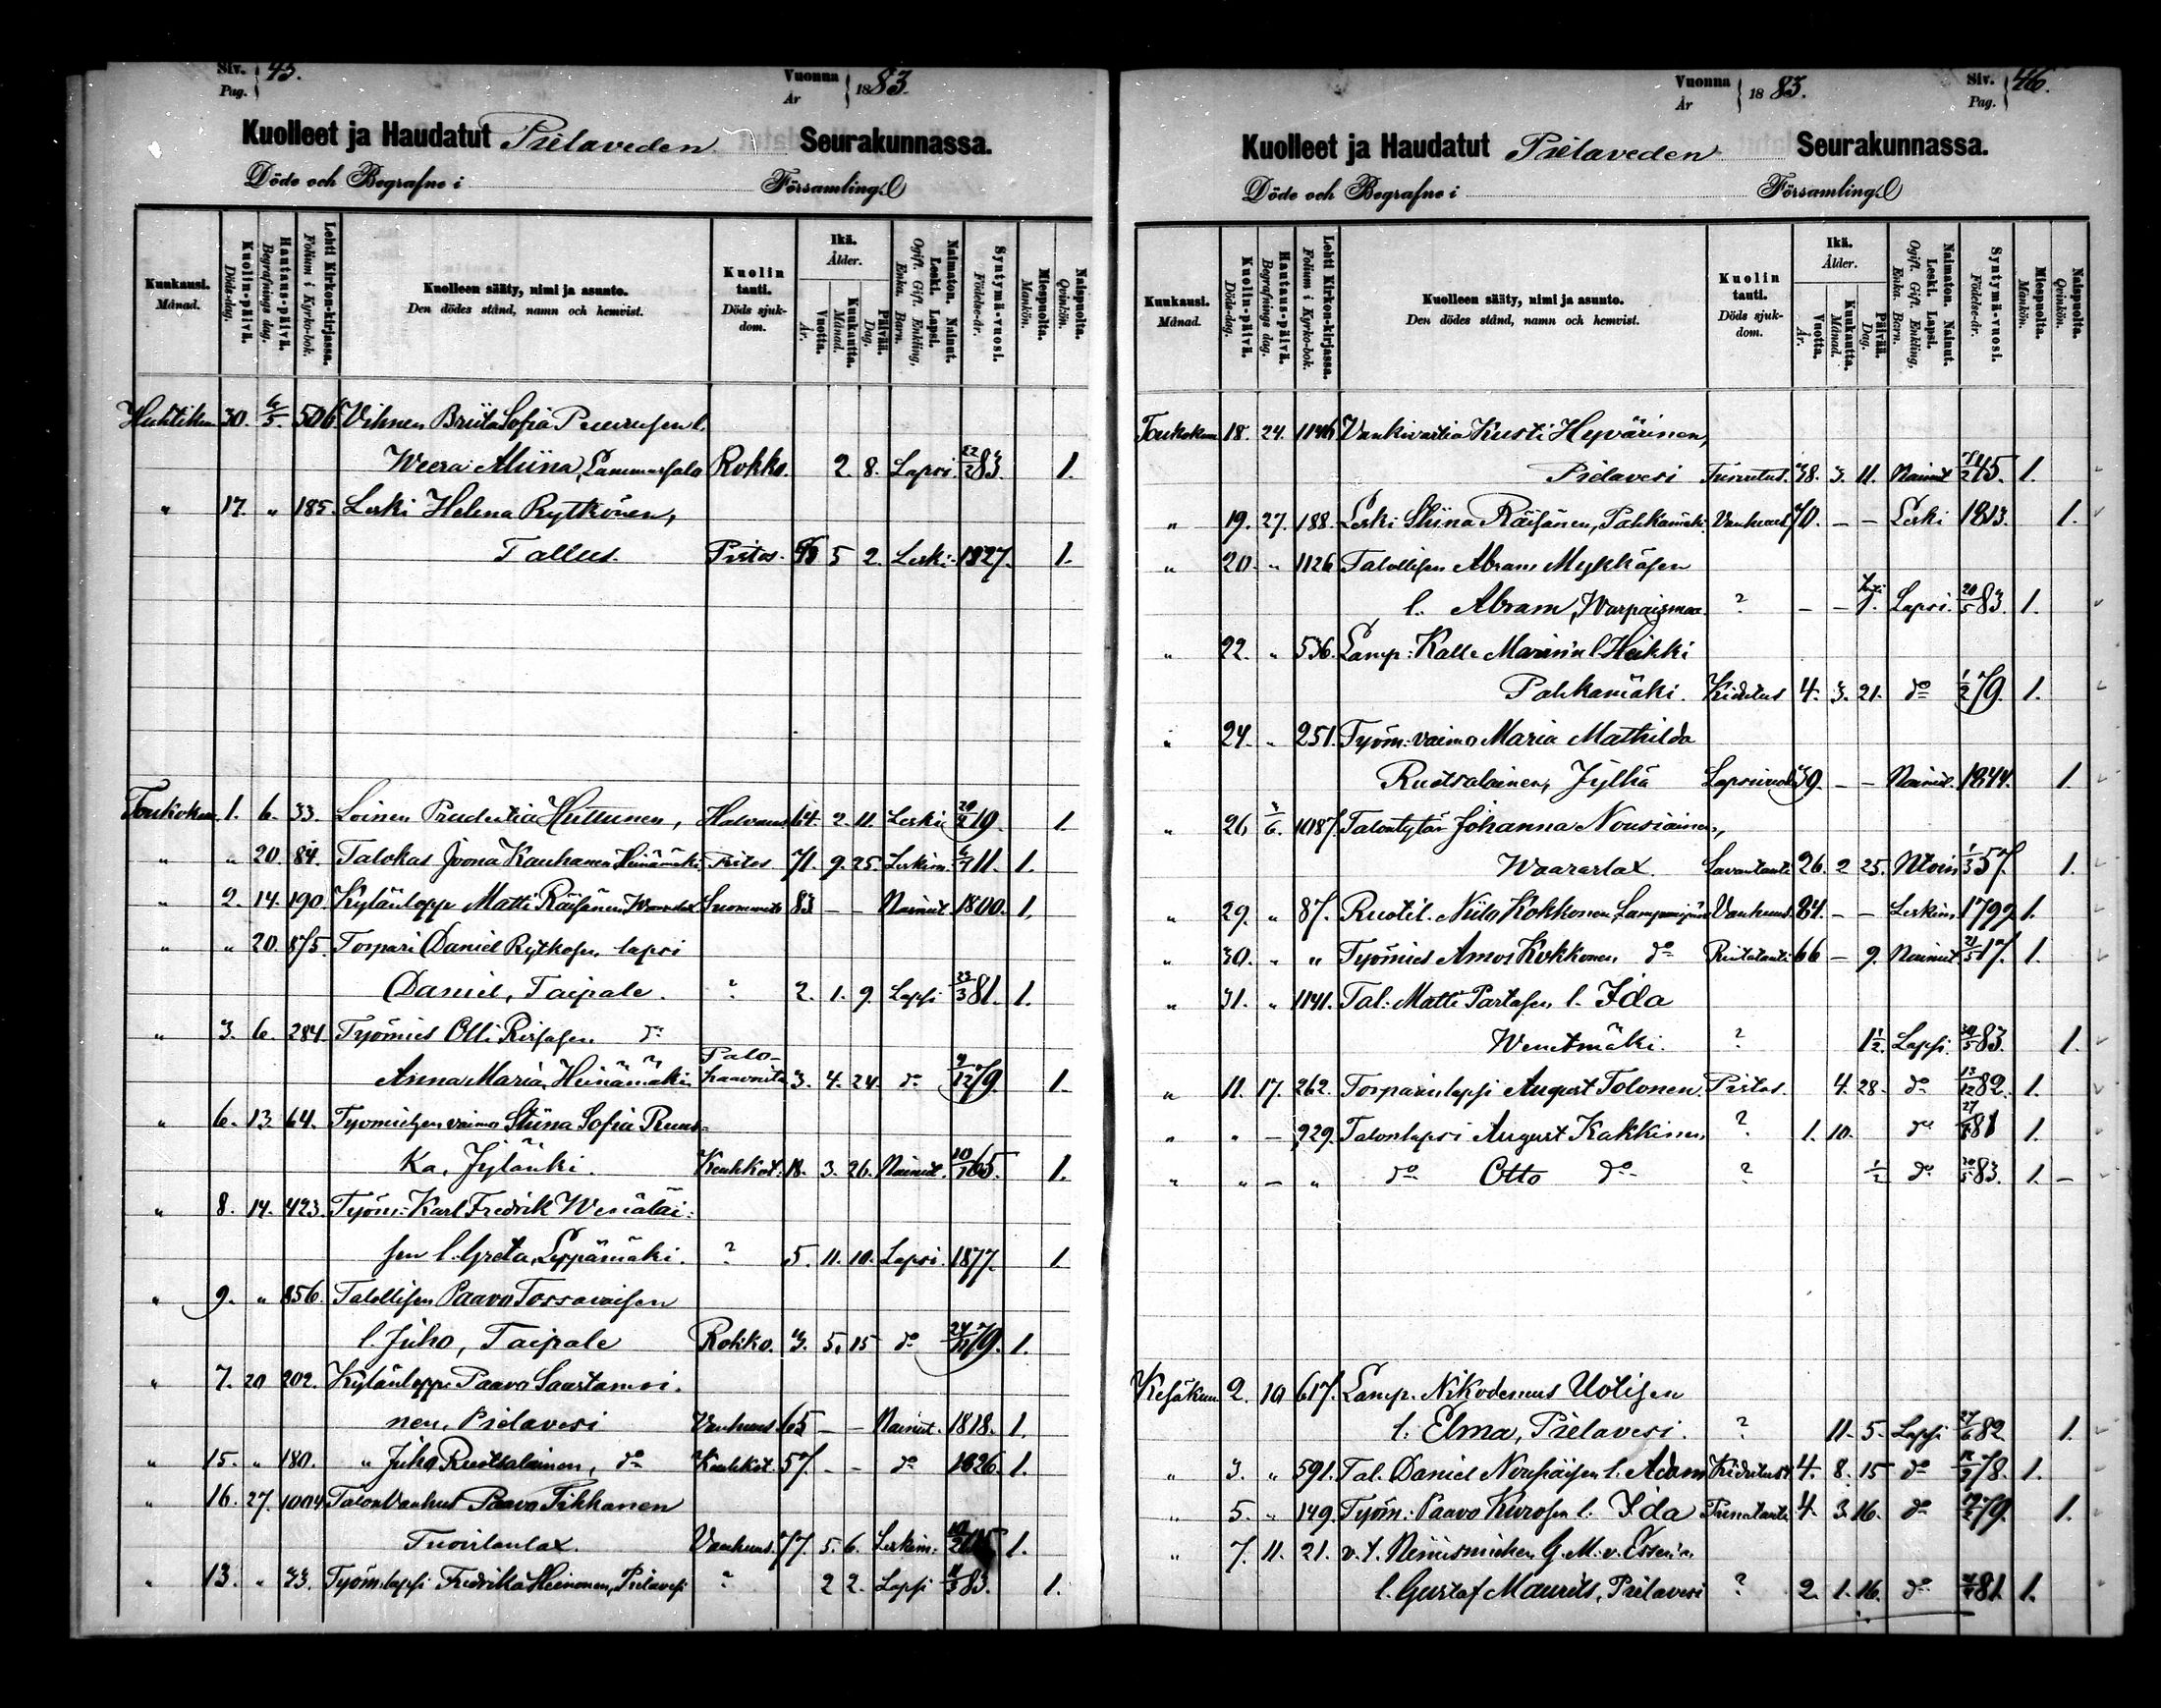 Siv. Pag. 45. Vuonna År 1883.
Kuolleet ja Haudatut Pielaveden Seurakunnassa.
Döde och Begrafne i Församling.
Kuukausi. Månad. Kuolin-päivä. Döds-dag. Hautaus-päivä. Begrafnings dag. Lehti Kirkon-kirjassa. Folium i Kyrko-bok. Kuolleen sääty, nimi ja asunto. Den dödes stånd, namn och hemvist. Kuolin tauti. Döds sjukdom. Ikä. Ålder. Vuotta. År. Kuukautta. Månad. Päivää. Dag. Naimaton. Nainut. Leski. Lapsi. Ogift. Gift. Enkling, Enka. Barn. Syntymä-vuosi. Födelse-år. Miespuolta. Mankön. Naispuolta. Qvinkön.
Huhtikuu 30. 6/5. 506 Vihnen Briita Sofia l.
Weera Miina, Lammassalo Rokko. 2. 8. Lapsi. 22/2 83. 1.
" 17. " 185. Leski Helena Rytkönen,
Tallus. Pistos. 5 2. Leski. 1827. 1.
Toukokuu. 1. 6. 33. Loinen Prudentia Huttunen, Halvaus 64. 2. 11. Leski 19. 1.
" " 20. 84. Talokas Joona Kauhanen Heinämäki Pistos 71. 9. 25. Leskim. 11. 1.
" 2. 14. 190. Kylänlopp Matti Räisänen, 83 – – Nainut 1800. 1.
" " 20. 875. Torpari Daniel Rytkösen lapsi
Daniel, Taipale. ? 2. 1. 9. Lapsi 23/3 81. 1.
" 3. 6. 284. Työmies Olli do
Anna Maria, Heinämäki Palohaavoista 3. 4. 24. do 9/12 79. 1.
" 6. 13. 64. Työmiehen vaimo Stiina Sofia Ruus-
ka, Jylänki. Keuhkot. 18. 3. 26. Nainut. 10/1 65. 1.
" 8. 14. 423. Työm: Karl Fredrik Wenäläi-
sen l. Greta, Leppämäki. ? 5. 11. 10. Lapsi. 1877. 1.
" 9. " 856. Talollisen Paavo Tossavaisen
l. Juho, Taipale Rokko. 3. 5. 15 do 24/11 79. 1.
" 7. 20 202. Kylänlopp. Paavo Saastamoi-
nen, Pielavesi Vanhuus 65 – – Nainut. 1818. 1.
" 15. " 180. " Juho Ruotsalainen, do Keuhkot. 57. – – do 1826. 1.
" 16. 27. 1004 Talon Vanhus Paavo Tikkanen
Tuovilanlax. Vanhuus. 77. 5. 6. Leskim. 1.
" 13. " 33. Työm. lapsi Fredrika Heinonen, Pielavesi ? 2 2. Lapsi 83. 1.
Vuonna År 1883. Siv. Pag. 46.
Kuolleet ja Haudatut Pielaveden Seurakunnassa.
Döde och Begrafne i Församling.
Kuukausi. Månad. Kuolin-päivä. Döds-dag. Hautaus-päivä. Begrafnings dag. Lehti Kirkon-kirjassa. Folium i Kyrko-bok. Kuolleen sääty, nimi ja asunto. Den dödes stånd, namn och hemvist. Kuolin tauti. Döds sjukdom. Ikä. Ålder. Vuotta. År. Kuukautta. Månad. Päivää. Dag. Naimaton. Nainut. Leski. Lapsi. Ogift. Gift. Enkling, Enka. Barn. Syntymä-vuosi. Födelse-år. Miespuolta. Mankön. Naispuolta. Qvinkön.
Toukokuu 18. 24. 1146 Vankivartia Kusti Hyvärinen,
Pielavesi Turvotus. 38. 3. 11. Nainut 45. 1.
" 19. 27. 188. Leski Stiina Räisänen, Pahkamäki Vanhuus 70. – – Leski 1813. 1.
" 20. " 1126 Talollisen Abram Mykkäsen
l. Abram, Warpaismaa. ? – – 1. Lapsi. 20/5 83. 1.
" 22. " 536. Lamp: Kalle l. Heikki
Pahkamäki. Kidutus 4. 3. 21. do 1/2 79. 1.
" 24. " 251. Työm: vaimo Maria Mathilda
Ruotsalainen, Jylhä Lapsivuode 39. – – Nainut. 1844. 1.
" 26. 3/6. 1087. Talontytär Johanna Nousiainen,
Waararlax. Lavantauti 26. 2 25. Ntoin 1/3 57. 1.
" 29. " 87. Ruotil. Niilo Kokkonen, Vanhuus. 84. – – Leskim. 1799. 1.
" 30. " " Työmies Amos Kokkonen, do Rintatauti 66 – 9. Nainut 21/5 17. 1.
" 31. " 1141. Tal: Matti Partasen, l. Ida
Wenetmäki. ? 1½. Lapsi. 30/5 83. 1.
" 11. 17. 262. Torparin lapsi August Tolonen. Pistos. 4. 28. do 13/12 82. 1.
" " – 929. Talonlapsi August Kakkinen, ? 1. 10. do 81 1.
" " – " do Otto do ? ½ do 83. 1. –
Kesäkuu 2. 10 617. Lamp. Nikodemus Uotisen
l. Elma, Pielavesi. ? 11. 5. Lapsi 27/6 82. 1.
" 3. " 591. Tal. Daniel Nousiaisen l. Adam Kidutus 4. 8. 15 do 78. 1.
" 5. " 149. Työm: Paavo Kurosen l. Ida Punatauti 4. 3. 16. do 79. 1.
" 7. 11. 21. v. t. Nimismiehen G. M. v. Essenin
l. Gustaf Maurits, Pielavesi ? 2. 1. 16. do 81. 1.